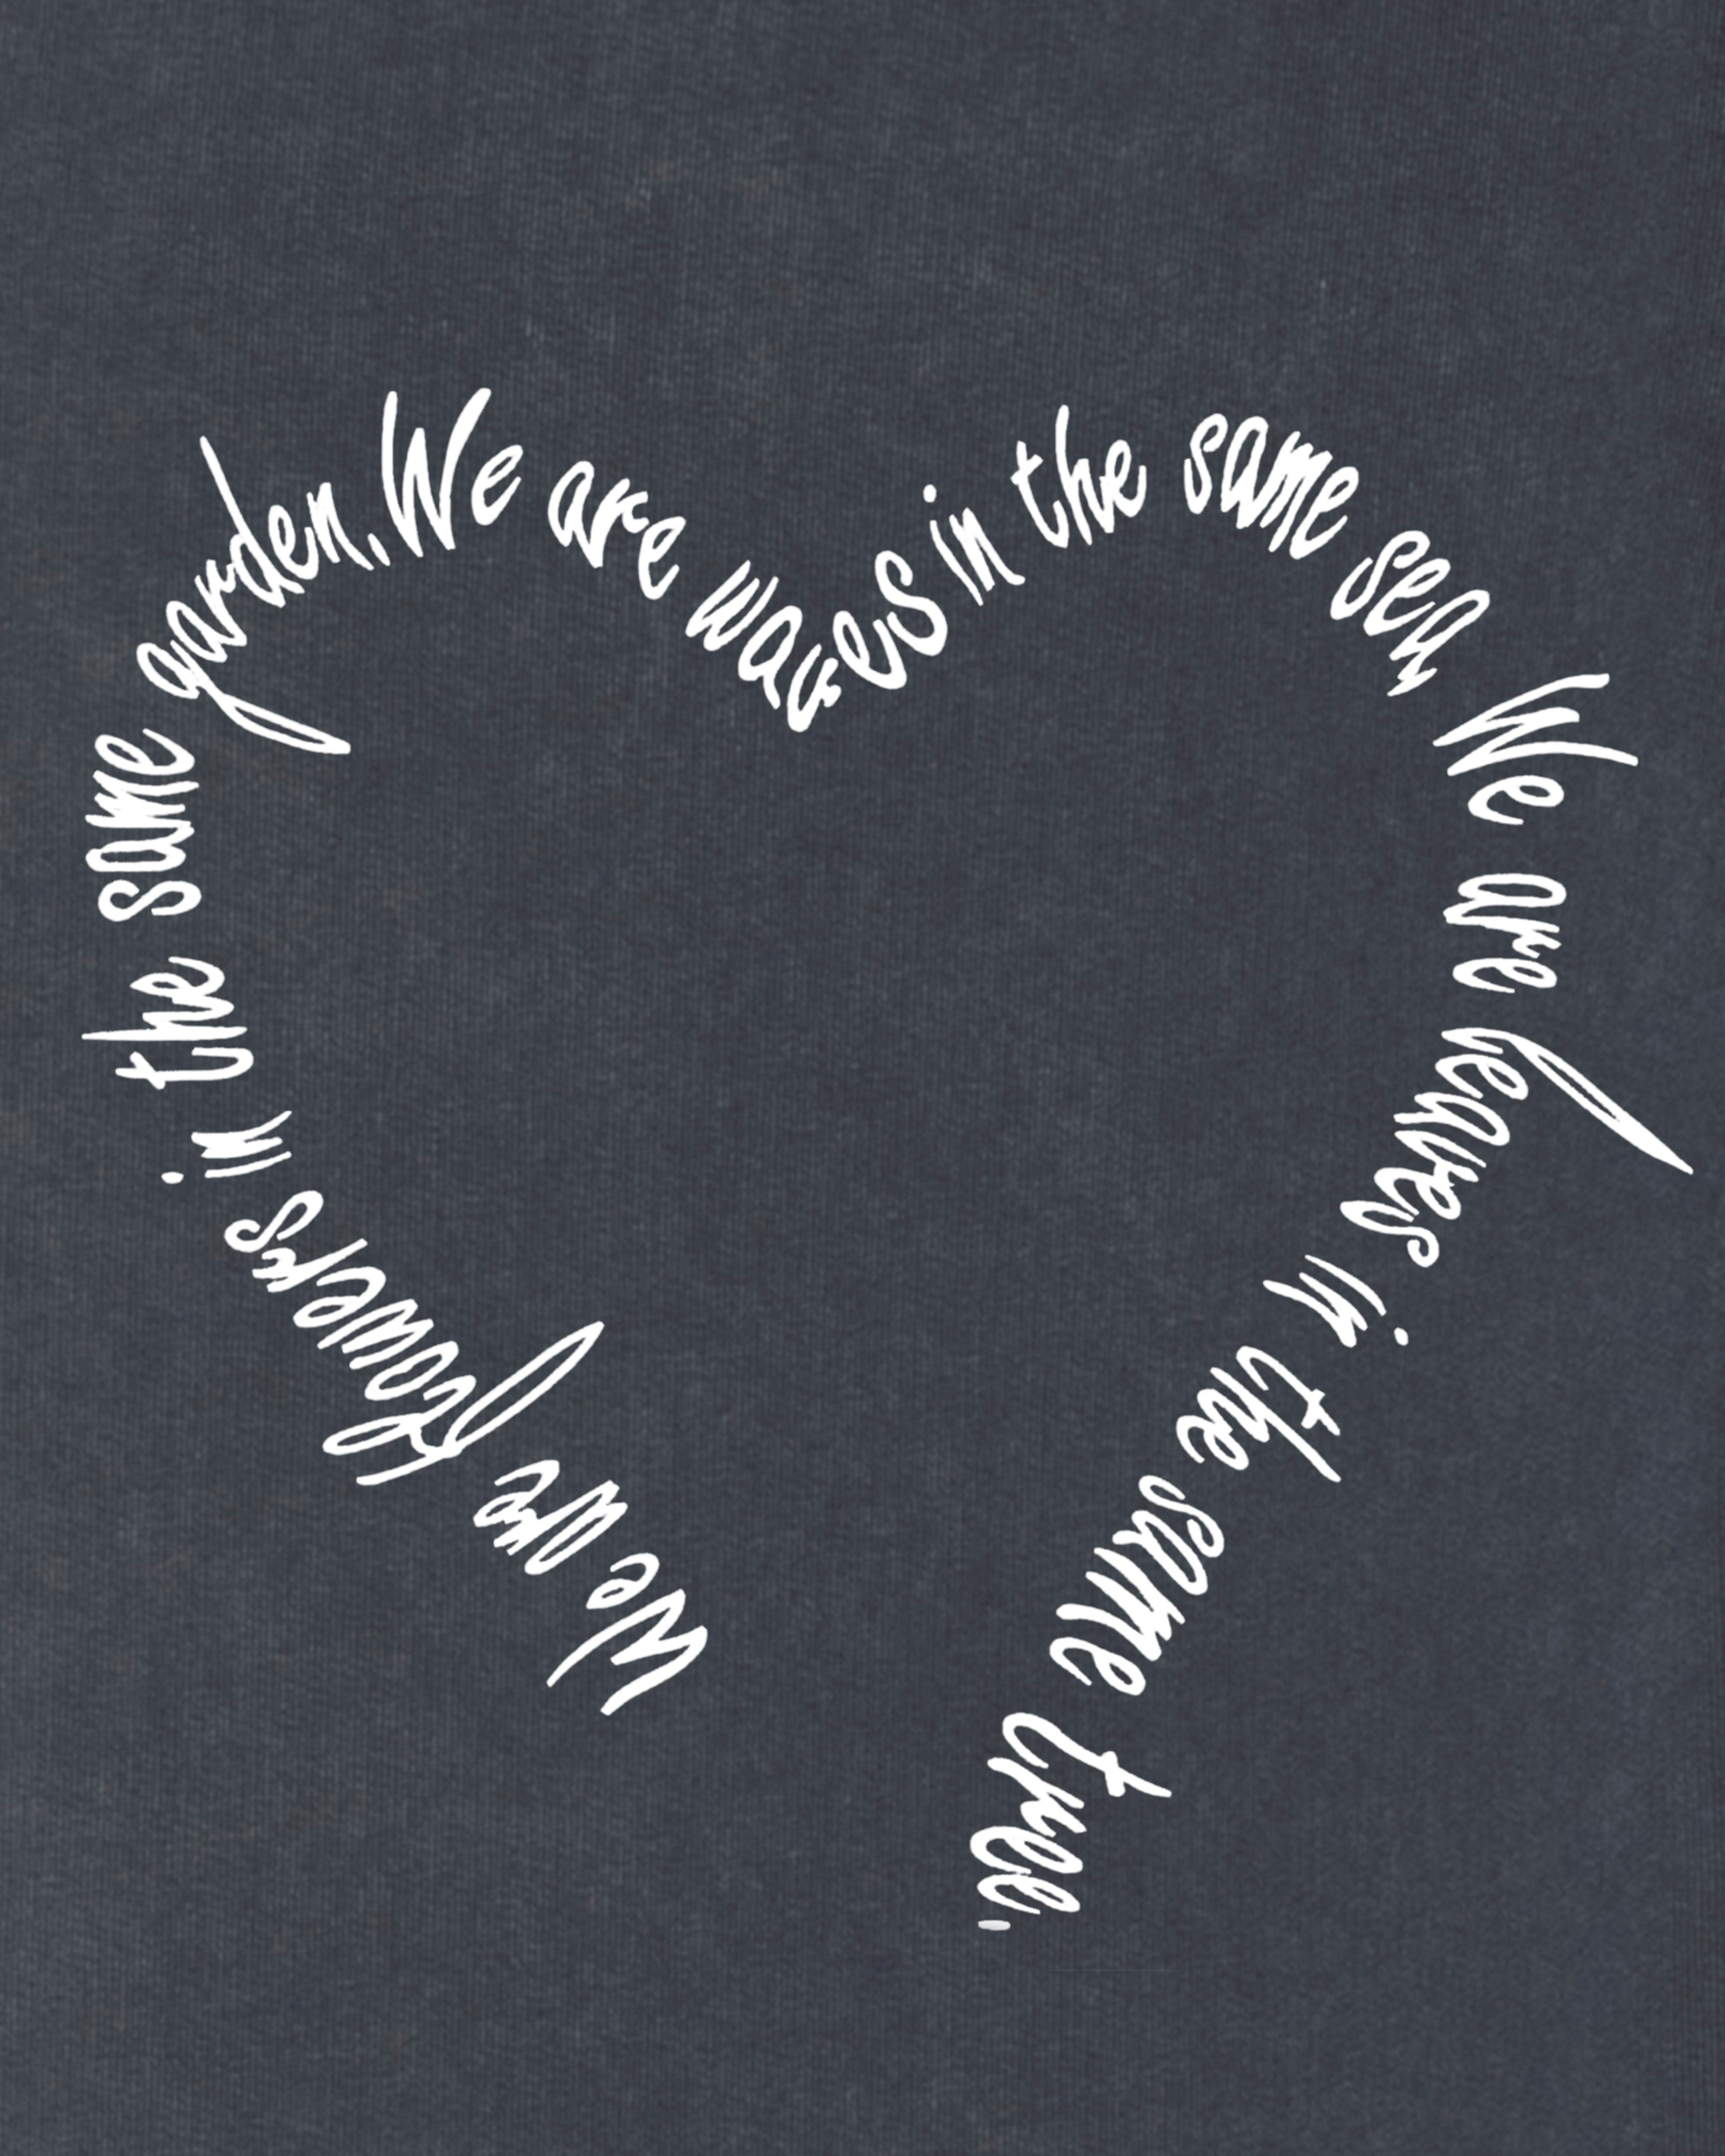 We are flowers in the same garden, We are waves in the same sea, We are leaves in the same tree.